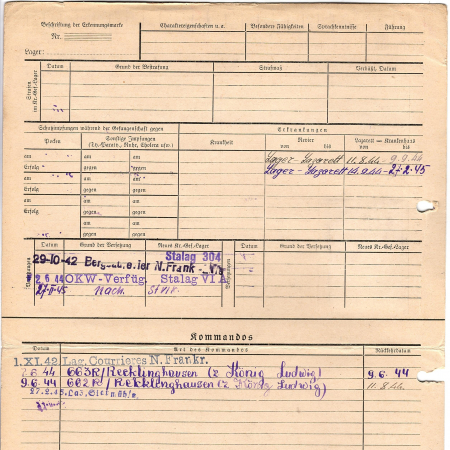 Beschriftung der Erkennungsmarke
Nr.
Lager:
Charaktereigenschaften u. a.
Besondere Fähigkeiten
Sprachkenntnisse
Führung
Strafen im Kr.-Gef.-Lager
Datum
Grund der Bestrafung
Strafmaß
Verbüßt, Datum
Schutzimpfungen während der Gefangenschaft gegen
Erkrankungen
Pocken
Sonstige Impfungen
(Ty.-Paraty., Ruhr, Cholera usw.)
Krankheit
Revier
Lazarett — Krankenhaus
von
bis
von
bis
am
am
am
Lager-Lazarett 11.8.44 - 9.9.44
Erfolg
gegen
gegen
Lager-Lazarett 14.9.44 - 27.2.45
am
am
am
Erfolg
gegen
gegen
am
am
am
Erfolg
gegen
gegen
am
am
gegen
gegen
Datum
Grund der Versetzung
Neues Kr.-Gef.-Lager
Datum
Grund der Versetzung
Neues Kr.-Gef.-Lager
Stalag 304
29-10-42 N. Frank
2 6 44 OKW-Verfüg. Stalag VI A
27-II-45 Nach.
Kommandos
Datum
Art des Kommandos
Rückkehrdatum
1. XI. 42 Lag. Courrieres N. Frankr.
2.6.44 663R/Recklinghausen (z König Ludwig) 9.6.44
9.6.44 602R/Recklinghausen (z König Ludwig) 11.8.44
27.2.45